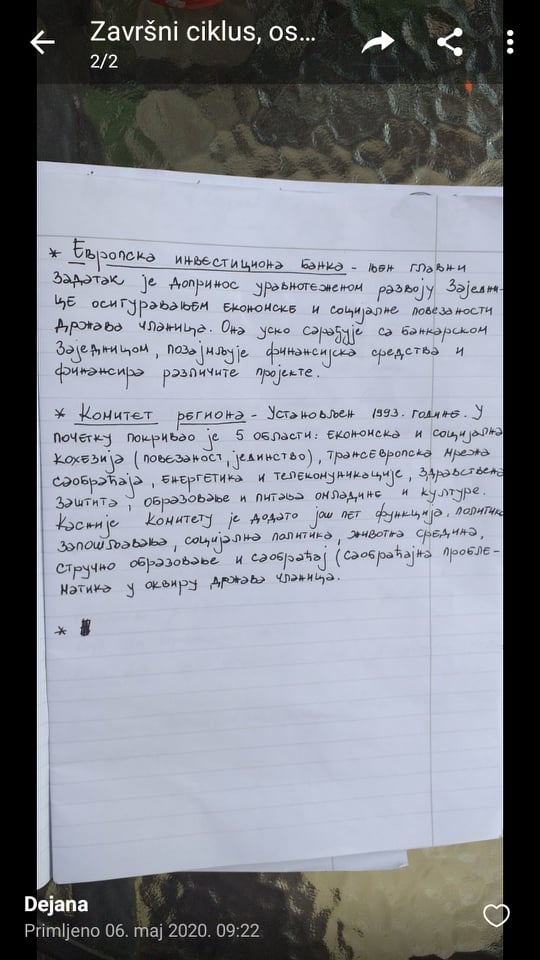 Završni ciklus, os...
2/2
* Европска инвестициона банка - њен главни
задатак је допринос уравнотеженом развоју Заједни-
це осигуравањем економске и социјалне повезаности
држава чланица. Она уско сарађује са банкарском
Заједницом, позајмљује финансијска средства и
финансира различите пројекте.
* Комитет региона - Установљен 1993. године. У
почетку покривао је 5 области: економска и социјална
кохезија (повезаност, јединство), трансевропска мрежа
саобраћаја, енергетика и телекомуникације, здравствена
заштита, образовање и питања омладине и културе.
Касније Комитету је додато још пет функција, политика
запошљавања, социјална политика, животна средина,
стручно образовање и саобраћај (саобраћајна пробле-
матика у оквиру држава чланица.
*
Dejana
Primljeno 06. maj 2020. 09:22